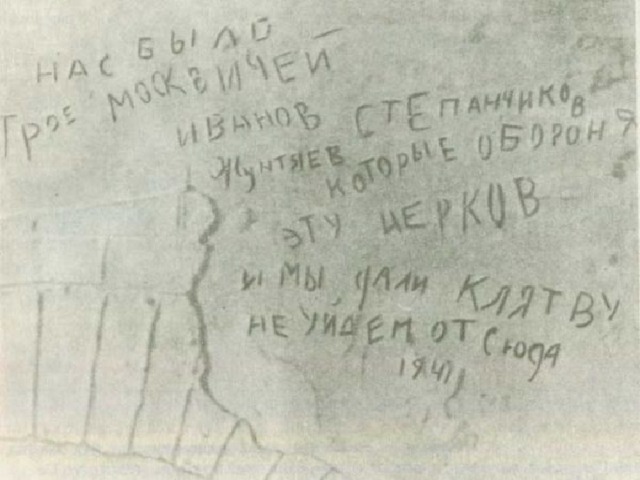 НАС БЫЛО
Трое МОСКВИЧЕЙ
ИВАНОВ СТЕПАНЧИКОВ
Жунтяев КОТОРЫЕ ОБОРОНЯ
ЭТУ ЦЕРКОВ
И МЫ ДАЛИ КЛЯТВУ
НЕ УЙДЕМ ОТСюда
1941